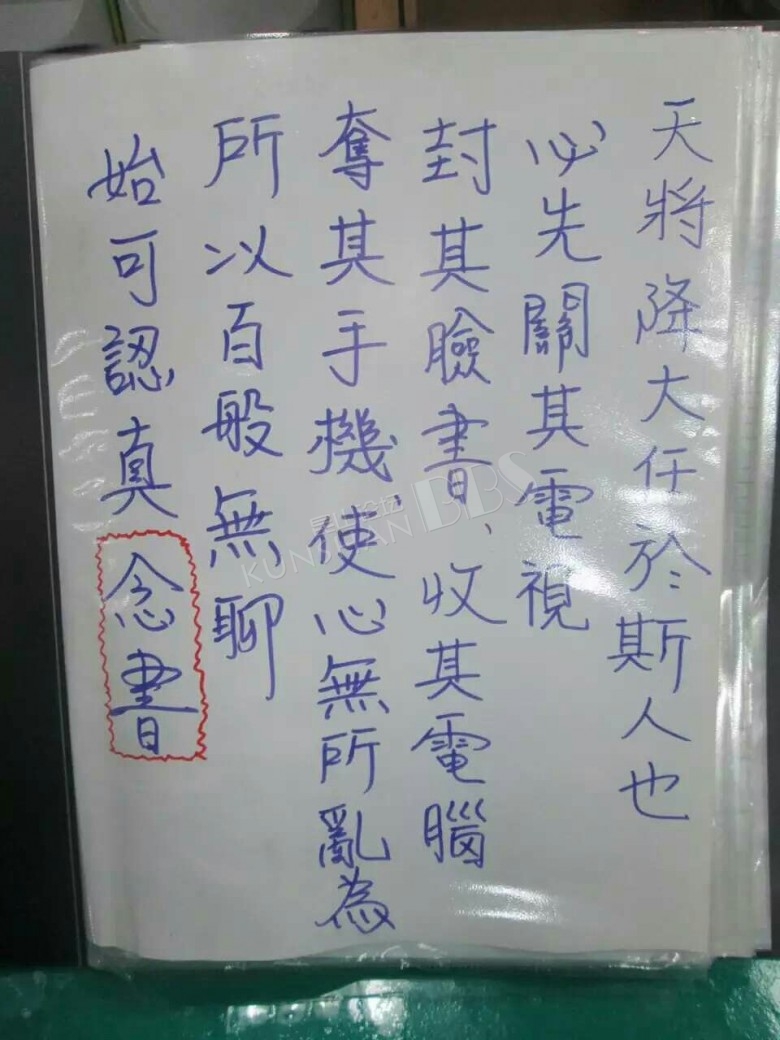 天將降大任於斯人也
必先關其電視
封其臉書、收其電腦
奪其手機、使心無所亂為
所以百般無聊
始可認真念書
KUNSHAN BBS